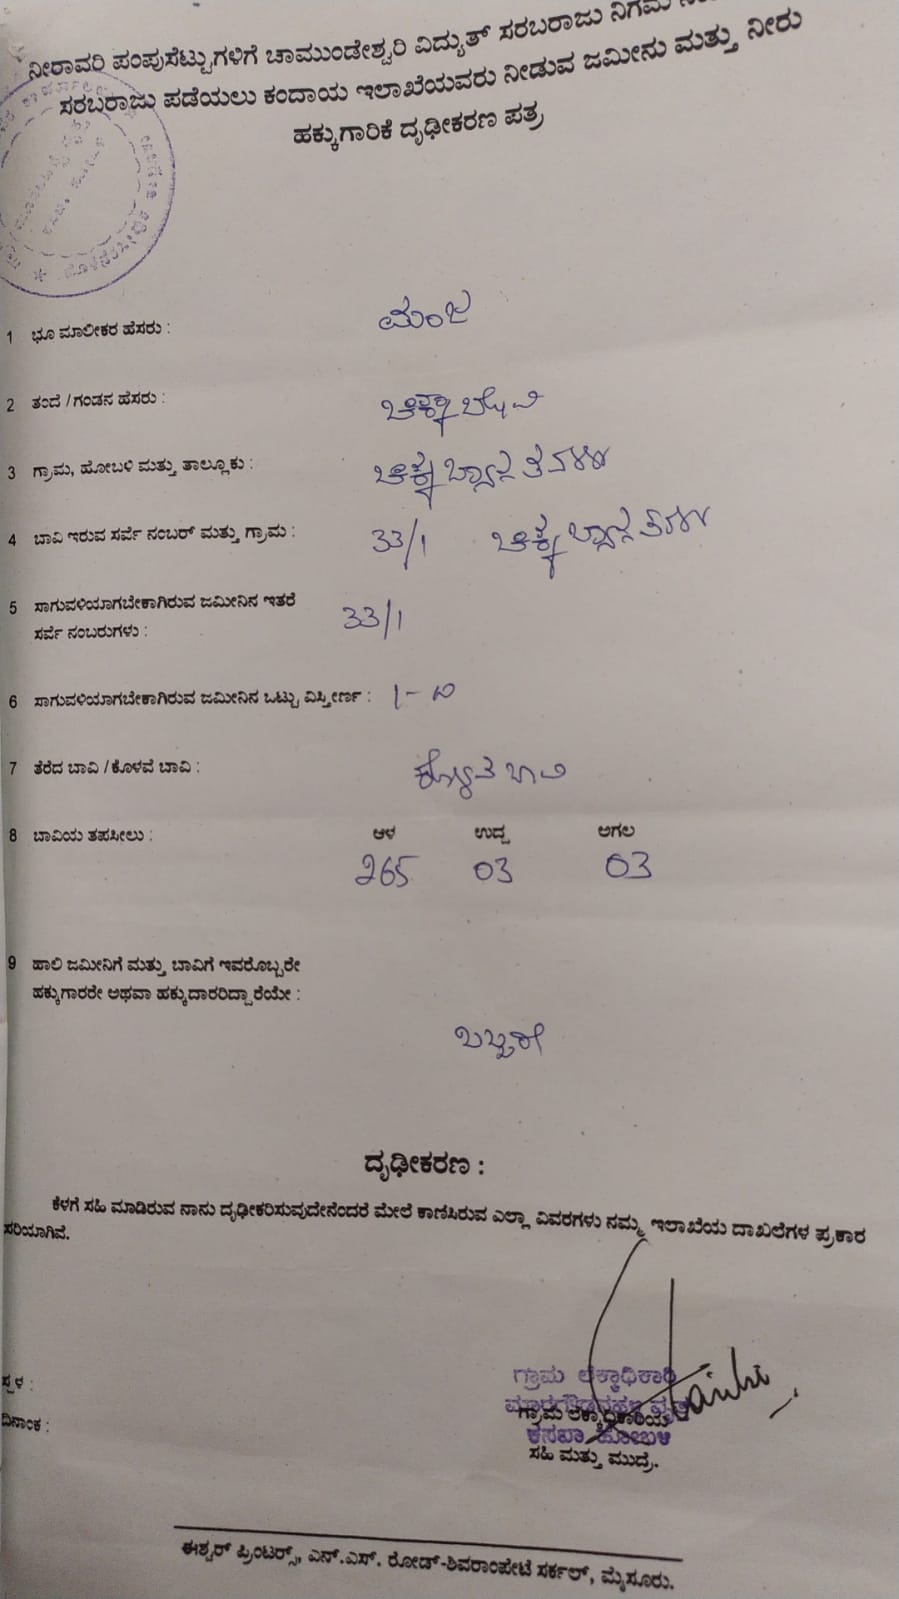 ನೀರಾವರಿ ಪಂಪುಸೆಟ್ಟುಗಳಿಗೆ ಚಾಮುಂಡೇಶ್ವರಿ ವಿದ್ಯುತ್ ಸರಬರಾಜು ನಿಗಮ
ಸರಬರಾಜು ಪಡೆಯಲು ಕಂದಾಯ ಇಲಾಖೆಯವರು ನೀಡುವ ಜಮೀನು ಮತ್ತು ನೀರು
ಹಕ್ಕುಗಾರಿಕೆ ದೃಢೀಕರಣ ಪತ್ರ
1 ಭೂ ಮಾಲೀಕರ ಹೆಸರು : ಮಂಜ
2 ತಂದೆ / ಗಂಡನ ಹೆಸರು :
3 ಗ್ರಾಮ, ಹೋಬಳಿ ಮತ್ತು ತಾಲ್ಲೂಕು :
4 ಬಾವಿ ಇರುವ ಸರ್ವೆ ನಂಬರ್ ಮತ್ತು ಗ್ರಾಮ : 33/1
5 ಸಾಗುವಳಿಯಾಗಬೇಕಾಗಿರುವ ಜಮೀನಿನ ಇತರೆ
ಸರ್ವೆ ನಂಬರುಗಳು : 33/1
6 ಸಾಗುವಳಿಯಾಗಬೇಕಾಗಿರುವ ಜಮೀನಿನ ಒಟ್ಟು ವಿಸ್ತೀರ್ಣ :
7 ತೆರೆದ ಬಾವಿ / ಕೊಳವೆ ಬಾವಿ : ಕೊಳವೆ ಬಾವಿ
8 ಬಾವಿಯ ತಪಸೀಲು : ಆಳ ಉದ್ದ ಅಗಲ
265 03 03
9 ಹಾಲಿ ಜಮೀನಿಗೆ ಮತ್ತು ಬಾವಿಗೆ ಇವರೊಬ್ಬರೇ
ಹಕ್ಕುಗಾರರೇ ಅಥವಾ ಹಕ್ಕುದಾರರಿದ್ದಾರೆಯೇ :
ಒಬ್ಬರೇ
ದೃಢೀಕರಣ :
ಕೆಳಗೆ ಸಹಿ ಮಾಡಿರುವ ನಾನು ದೃಢೀಕರಿಸುವುದೇನೆಂದರೆ ಮೇಲೆ ಕಾಣಿಸಿರುವ ಎಲ್ಲಾ ವಿವರಗಳು ನಮ್ಮ ಇಲಾಖೆಯ ದಾಖಲೆಗಳ ಪ್ರಕಾರ
ಸರಿಯಾಗಿವೆ.
ಸ್ಥಳ :
ದಿನಾಂಕ :
ಗ್ರಾಮ ಲೆಕ್ಕಾಧಿಕಾರಿ
ಗ್ರಾಮ ಲೆಕ್ಕಾಧಿಕಾರಿಯ
ಕಸಬಾ ಹೋಬಳಿ
ಸಹಿ ಮತ್ತು ಮುದ್ರೆ.
ಈಶ್ವರ್ ಪ್ರಿಂಟರ್ಸ್, ಎನ್.ಎಸ್. ರೋಡ್-ಶಿವರಾಂಪೇಟೆ ಸರ್ಕಲ್, ಮೈಸೂರು.